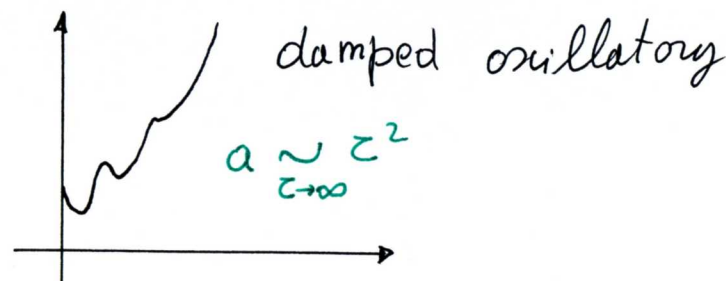 damped oscillatory
a ~ τ²
τ→∞